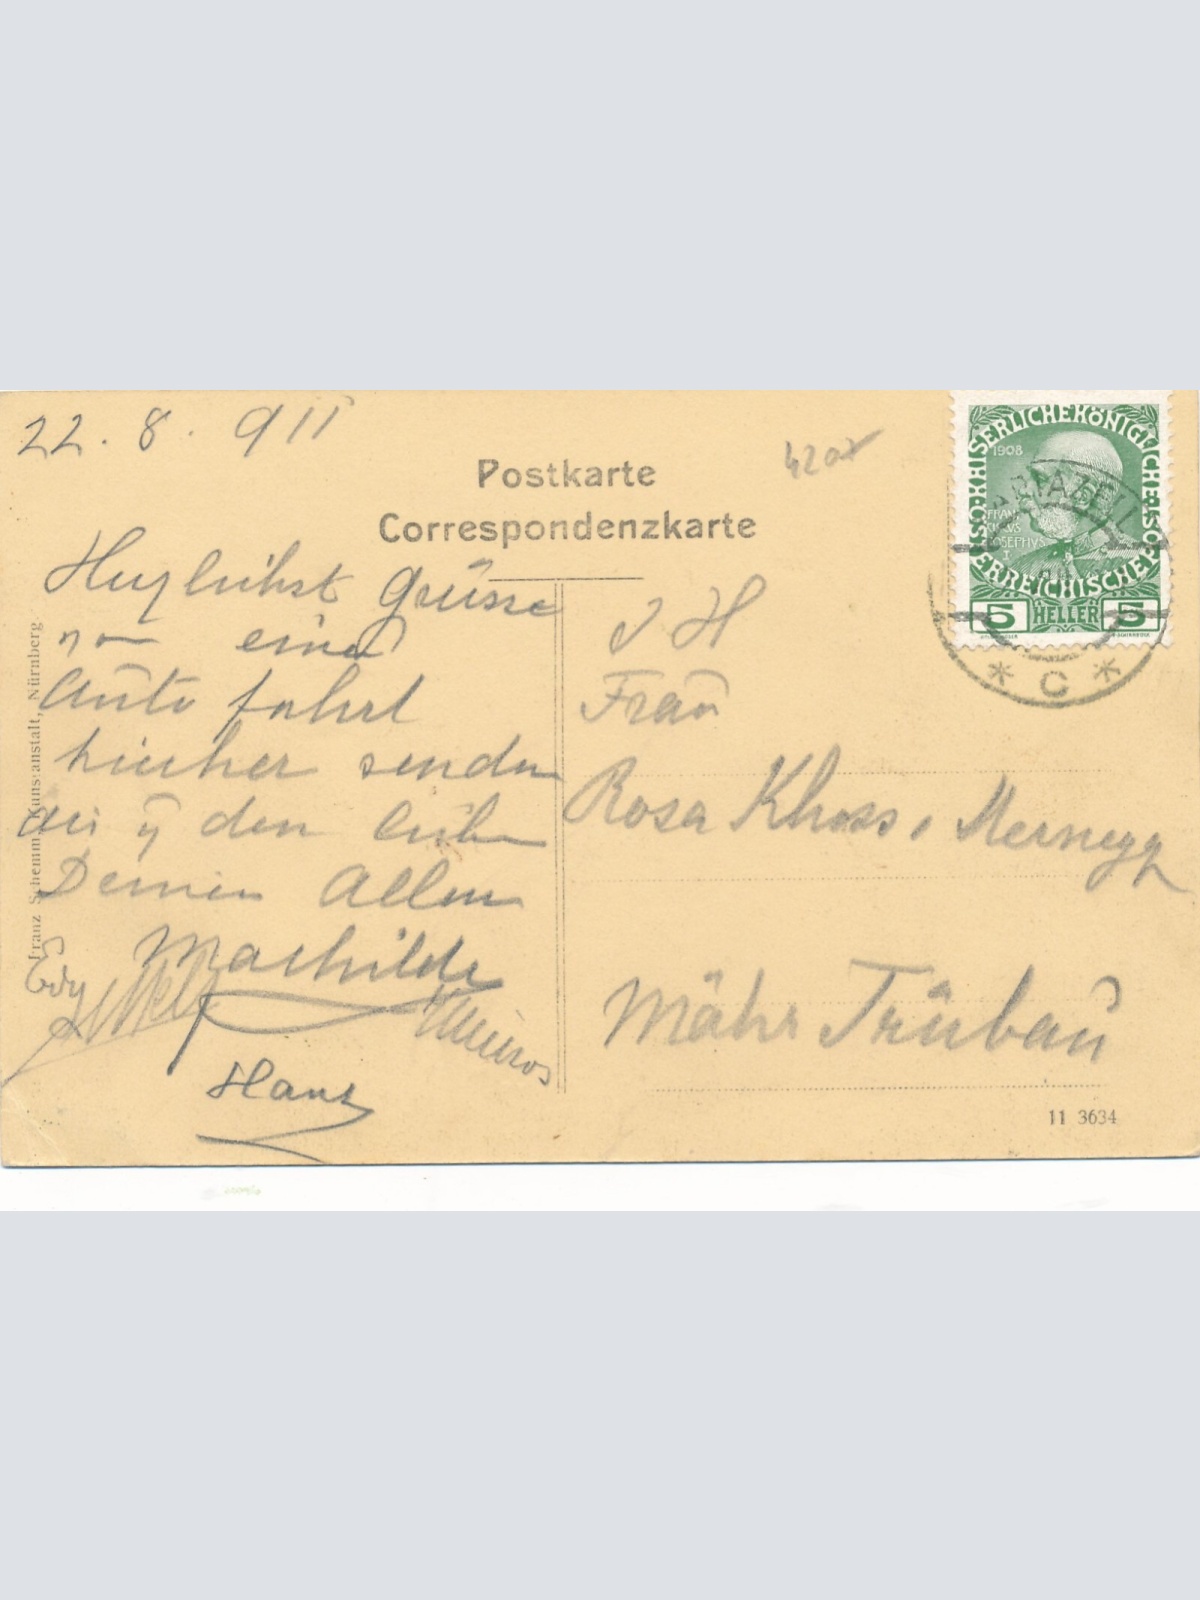 22. 8. 911
4207
Postkarte
Correspondenzkarte
Herzlichst Grüsse
von einer
Auto fahrt
hierher senden
dir ü den lieben
Deinen Allen
Mathilde
Edy
Hans
Franz Schemm, Kunstanstalt, Nürnberg
KAISERLICHE KÖNIGLICHE ÖSTERREICHISCHE POST
1908
FRANCISCVS
IOSEPHVS
I
5 HELLER 5
MARIAZELL
* C *
Frau
Rosa Khoss,
Mähr Trübau
11 3634